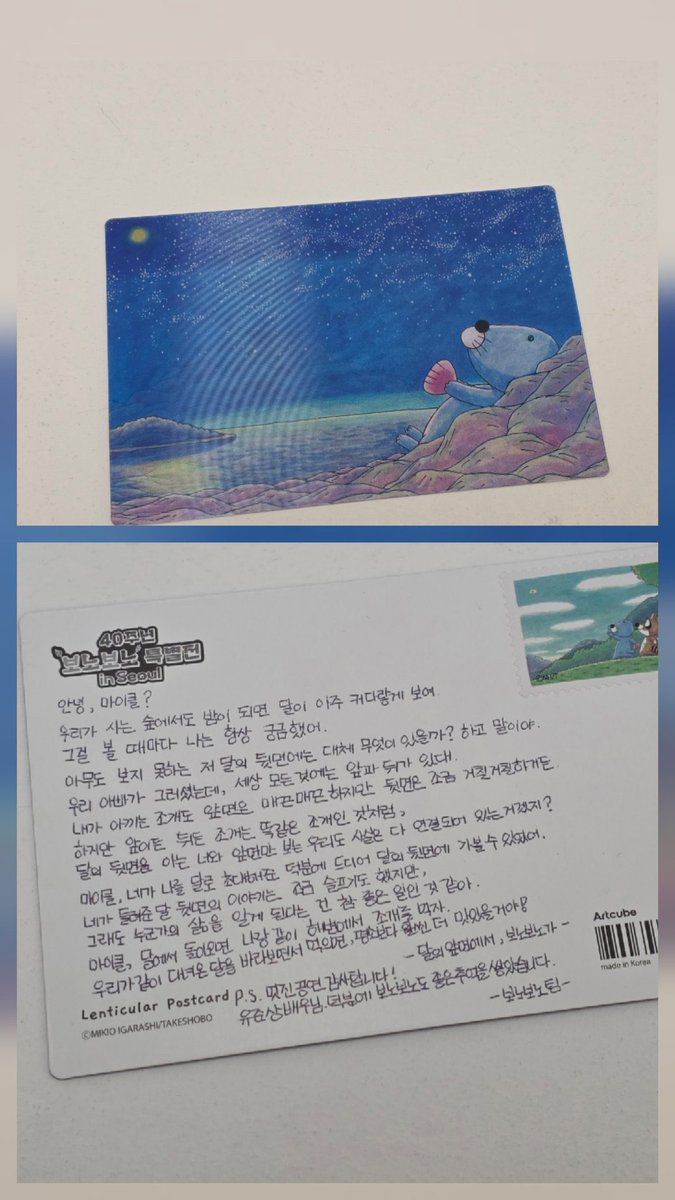 40주년
보노보노 특별전
in Seoul
안녕, 마이클?
우리가 사는 숲에서도 밤이 되면 달이 아주 커다랗게 보여.
그걸 볼 때마다 나는 항상 궁금했어.
아무도 보지 못하는 저 달의 뒷면에는 대체 무엇이 있을까? 하고 말이야.
우리 아빠가 그러셨는데, 세상 모든 것에는 앞과 뒤가 있대.
내가 아끼는 조개도 앞면은 매끈매끈 하지만 뒷면은 조금 거칠거칠하거든.
하지만 앞이든 뒤든 조개는 똑같은 조개인 것처럼,
달의 뒷면을 아는 너와 앞면만 보는 우리도 사실은 다 연결되어 있는거겠지?
마이클, 네가 나를 달로 초대해준 덕분에 드디어 달의 뒷면에 가볼 수 있었어.
네가 들려준 달 뒷면의 이야기는 조금 슬프기도 했지만,
그래도 누군가의 삶을 알게 된다는 건 참 좋은 일인 것 같아.
마이클, 달에서 돌아오면 나랑 같이 해변에서 조개를 먹자.
우리가 같이 다녀온 달을 바라보면서 먹으면, 평소보다 훨씬 더 맛있을거야!
- 달의 앞면에서, 보노보노가 -
Lenticular Postcard
P.S. 멋진 공연 감사합니다!
유준상배우님 덕분에 보노보노도 좋은 추억을 쌓았습니다.
- 보노보노팀 -
©MIKIO IGARASHI/TAKESHOBO
Artcube
made in Korea